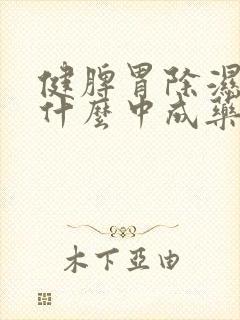 健脾胃除濕
什麼中成藥
木下亞由